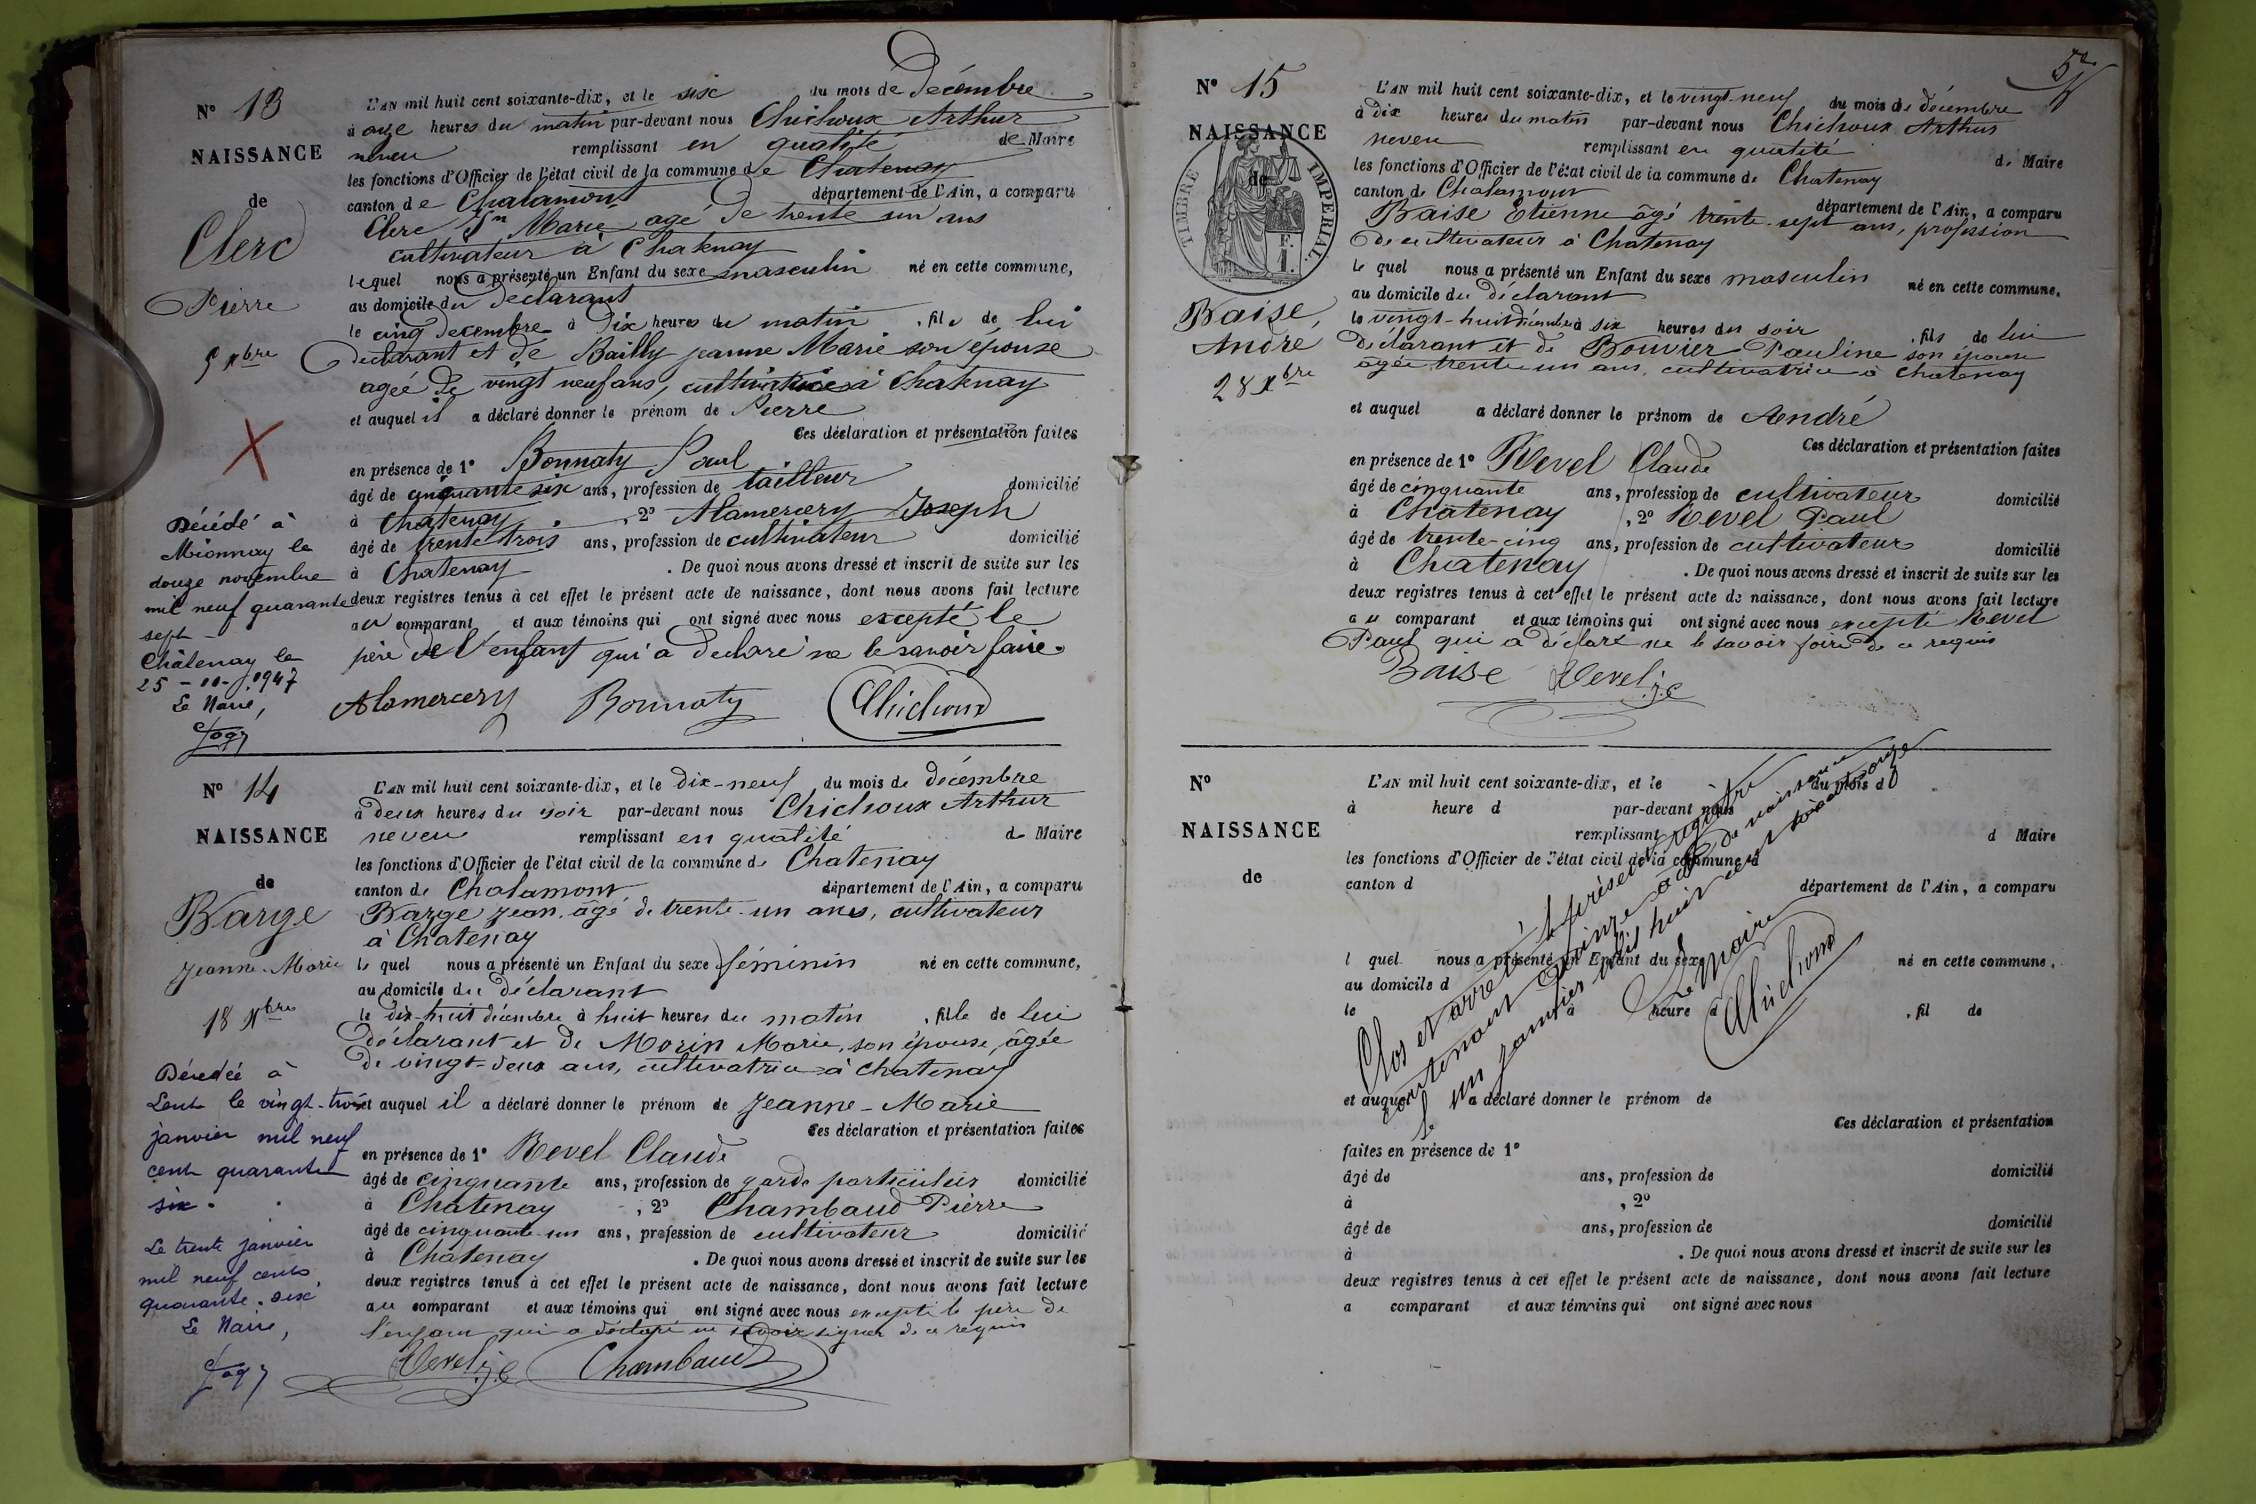 N° 13
NAISSANCE
de
Clerc
Pierre
5 Xbre
L'AN mil huit cent soixante-dix, et le six du mois de Décembre
à onze heures du matin par-devant nous Chichoux Arthur
neveu remplissant en qualité de Maire
les fonctions d'Officier de l'état civil de la commune de Chatenay
canton de Chalamont département de l'Ain, a comparu
Clerc Marie agé de trente un ans
cultivateur à Chatenay
lequel nous a présenté un Enfant du sexe masculin né en cette commune,
au domicile du déclarant
le cinq Decembre à Dix heures du matin, fils de lui
déclarant et de Bailly jeanne Marie son épouse
agée de vingt neuf ans, cultivatrice à Chatenay
et auquel il a déclaré donner le prénom de Pierre
Ces déclaration et présentation faites
en présence de 1° Bonnaty Paul
âgé de cinquante six ans, profession de tailleur domicilié
à Chatenay, 2° Alamercery Joseph
âgé de trente trois ans, profession de cultivateur domicilié
à Chatenay. De quoi nous avons dressé et inscrit de suite sur les
deux registres tenus à cet effet le présent acte de naissance, dont nous avons fait lecture
au comparant et aux témoins qui ont signé avec nous excepté le
père de l'enfant qui a declaré ne le savoir faire.
Alamercery Bonnaty AChichoux
Décédé à
Mionnay le
douze novembre
mil neuf quarante
sept
Châtenay le
1947
Le Maire,
N° 14
NAISSANCE
de
Barge
Jeanne-Marie
18 Xbre
L'AN mil huit cent soixante-dix, et le dix-neuf du mois de décembre
à deux heures du soir par-devant nous Chichoux Arthur
neveu remplissant en qualité de Maire
les fonctions d'Officier de l'état civil de la commune de Chatenay
canton de Chalamont département de l'Ain, a comparu
Barge Jean, âgé de trente-un ans, cultivateur
à Chatenay
le quel nous a présenté un Enfant du sexe féminin né en cette commune,
au domicile du déclarant
le dix-huit décembre à huit heures du matin, fille de lui
déclarant et de Morin Marie, son épouse, âgée
de vingt-deux ans, cultivatrice à Chatenay
et auquel il a déclaré donner le prénom de Jeanne-Marie
Ces déclaration et présentation faites
en présence de 1° Revel Claude
âgé de cinquante ans, profession de garde particulier domicilié
à Chatenay, 2° Chambaud Pierre
âgé de cinquante-un ans, profession de cultivateur domicilié
à Chatenay. De quoi nous avons dressé et inscrit de suite sur les
deux registres tenus à cet effet le présent acte de naissance, dont nous avons fait lecture
au comparant et aux témoins qui ont signé avec nous excepté le père de
l'enfant qui a déclaré ne savoir signer de ce requis
Revel Chambaud
Décédée à
le vingt-trois
janvier mil neuf
cent quarante
six.
Le trente janvier
mil neuf cent
quarante-six
Le Maire,
52
N° 15
NAISSANCE
de
TIMBRE IMPERIAL.
F.
1.
Baise,
André
28 Xbre
L'AN mil huit cent soixante-dix, et le vingt-neuf du mois de décembre
à dix heures du matin par-devant nous Chichoux Arthur
neveu remplissant en qualité de Maire
les fonctions d'Officier de l'état civil de la commune de Chatenay
canton de Chalamont département de l'Ain, a comparu
Baise Etienne âgé trente-sept ans, profession
de cultivateur à Chatenay
le quel nous a présenté un Enfant du sexe masculin né en cette commune,
au domicile du déclarant
le vingt-huit décembre à six heures du soir, fils de lui
déclarant et de Bouvier Pauline son épouse
âgée trente un ans, cultivatrice à Chatenay
et auquel a déclaré donner le prénom de André
Ces déclaration et présentation faites
en présence de 1° Revel Claude
âgé de cinquante ans, profession de cultivateur domicilié
à Chatenay, 2° Revel Paul
âgé de trente-cinq ans, profession de cultivateur domicilié
à Chatenay. De quoi nous avons dressé et inscrit de suite sur les
deux registres tenus à cet effet le présent acte de naissance, dont nous avons fait lecture
au comparant et aux témoins qui ont signé avec nous excepté Revel
Paul qui a déclaré ne le savoir faire de ce requis
Baise Revel
N°
NAISSANCE
de
L'AN mil huit cent soixante-dix, et le du mois d
à heure d par-devant nous
remplissant d Maire
les fonctions d'Officier de l'état civil de la commune d
canton d département de l'Ain, a comparu
l quel nous a présenté un Enfant du sexe né en cette commune,
au domicile d
le à heure d, fil de
et auquel a déclaré donner le prénom de
Ces déclaration et présentation
faites en présence de 1°
âgé de ans, profession de domicilié
à, 2°
âgé de ans, profession de domicilié
à. De quoi nous avons dressé et inscrit de suite sur les
deux registres tenus à cet effet le présent acte de naissance, dont nous avons fait lecture
a comparant et aux témoins qui ont signé avec nous
Clos et arrêté le présent registre
contenant quinze actes de naissance
le un janvier mil huit cent soixante onze
Le Maire
AChichoux